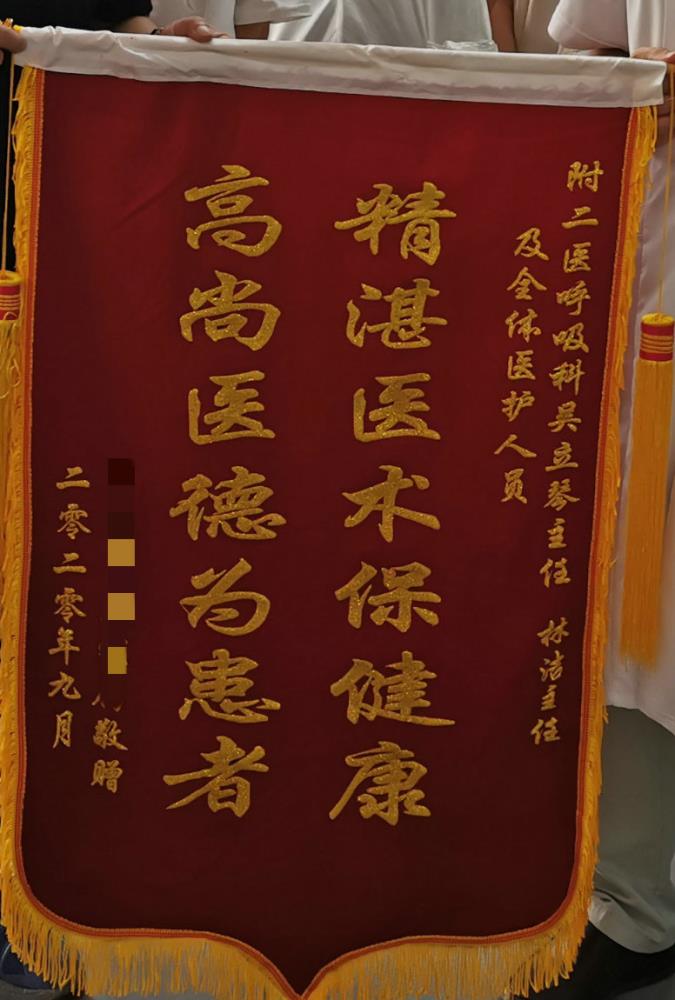 附二医呼吸科吴立琴主任 林洁主任
及全体医护人员
精湛医术保健康
高尚医德为患者
敬赠
二零二零年九月